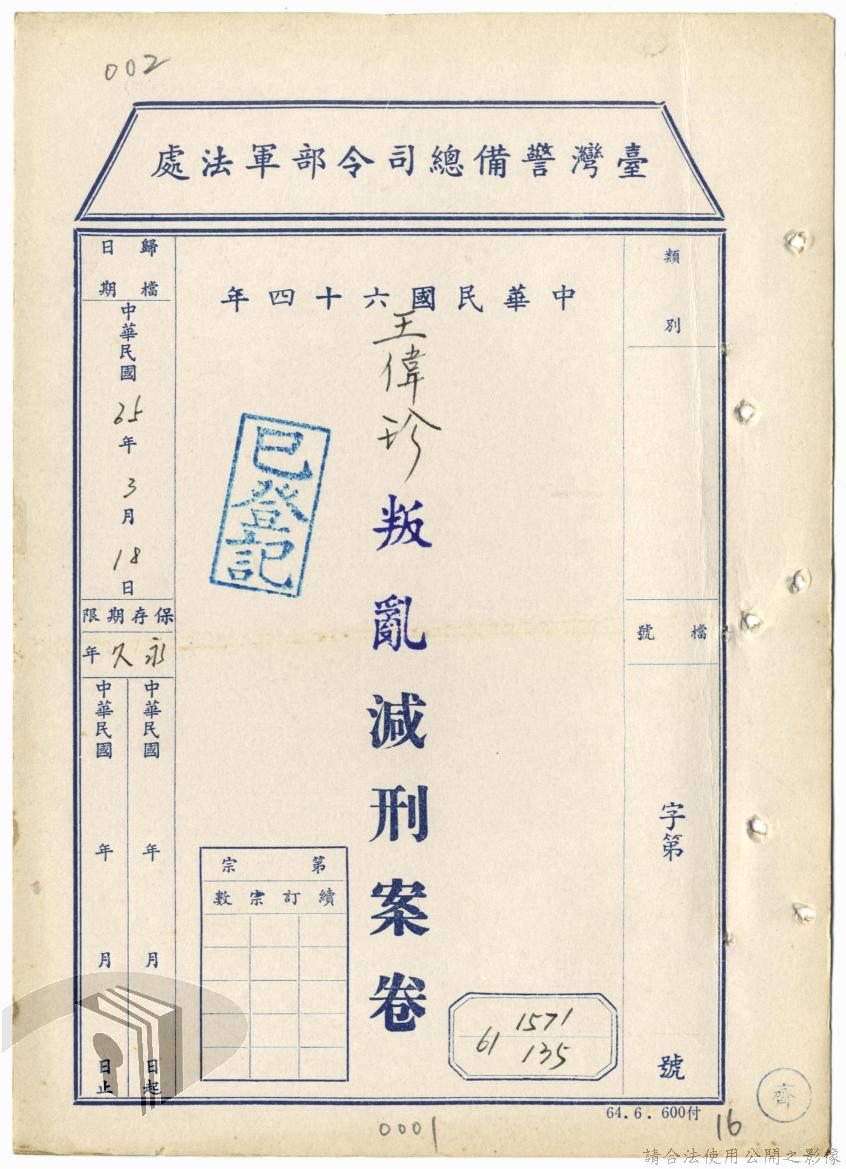 002
臺灣警備總司令部軍法處
中華民國六十四年
王偉珍叛亂減刑案卷
已登記
類別
檔號
字第
號
歸檔日期
中華民國
65年3月18日
保存期限
永久年
中華民國 年 月 日起
中華民國 年 月 日止
第 宗
續訂宗數
1571
61 135
64.6.600付
齊
16
0001
請合法使用公開之影像